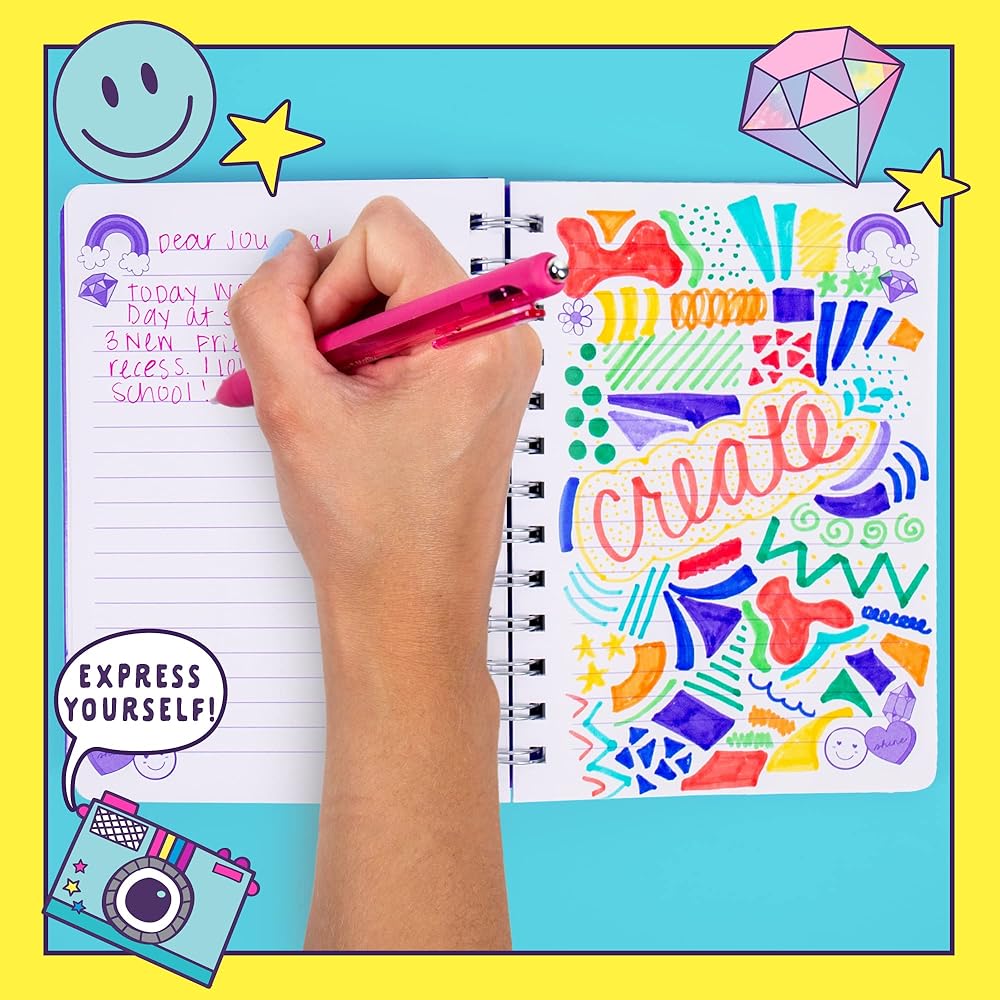 Dear Journal
Today
Day at
3 New
recess. I
school!
create
shine
EXPRESS
YOURSELF!